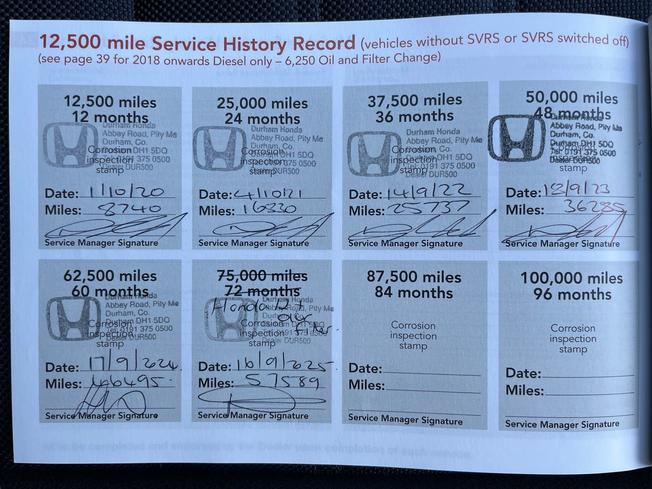 12,500 mile Service History Record (vehicles without SVRS or SVRS switched off)
(see page 39 for 2018 onwards Diesel only – 6,250 Oil and Filter Change)
12,500 miles
12 months
Durham Honda
Abbey Road, Pity Me
Durham, Co.
Durham DH1 5DQ
Tel: 0191 375 0500
Dealer DUR500
Corrosion
inspection
stamp
Date: 1/10/20
Miles: 8740
Service Manager Signature
25,000 miles
24 months
Durham Honda
Abbey Road, Pity Me
Durham, Co.
Durham DH1 5DQ
Tel: 0191 375 0500
Dealer DUR500
Corrosion
inspection
stamp
Date: 4/10/21
Miles: 16330
Service Manager Signature
37,500 miles
36 months
Durham Honda
Abbey Road, Pity Me
Durham, Co.
Durham DH1 5DQ
Tel: 0191 375 0500
Dealer DUR500
Corrosion
inspection
stamp
Date: 14/9/22
Miles: 25737
Service Manager Signature
50,000 miles
48 months
Durham Honda
Abbey Road, Pity Me
Durham, Co.
Durham DH1 5DQ
Tel: 0191 375 0500
Dealer DUR500
stamp
Date: /9/23
Miles: 36235
Service Manager Signature
62,500 miles
60 months
Durham Honda
Abbey Road, Pity Me
Durham, Co.
Durham DH1 5DQ
Tel: 0191 375 0500
Dealer DUR500
Corrosion
inspection
stamp
Date: 17/9/2024
Miles: 46495.
Service Manager Signature
75,000 miles
72 months
Durham Honda
Abbey Road, Pity Me
Durham, Co.
Durham DH1 5DQ
Tel: 0191 375 0500
Dealer DUR500
Honda
Filter.
Corrosion
inspection
stamp
Date: 16/9/2025
Miles: 57589
Service Manager Signature
87,500 miles
84 months
Corrosion
inspection
stamp
Date:
Miles:
Service Manager Signature
100,000 miles
96 months
Corrosion
inspection
stamp
Date:
Miles:
Service Manager Signature